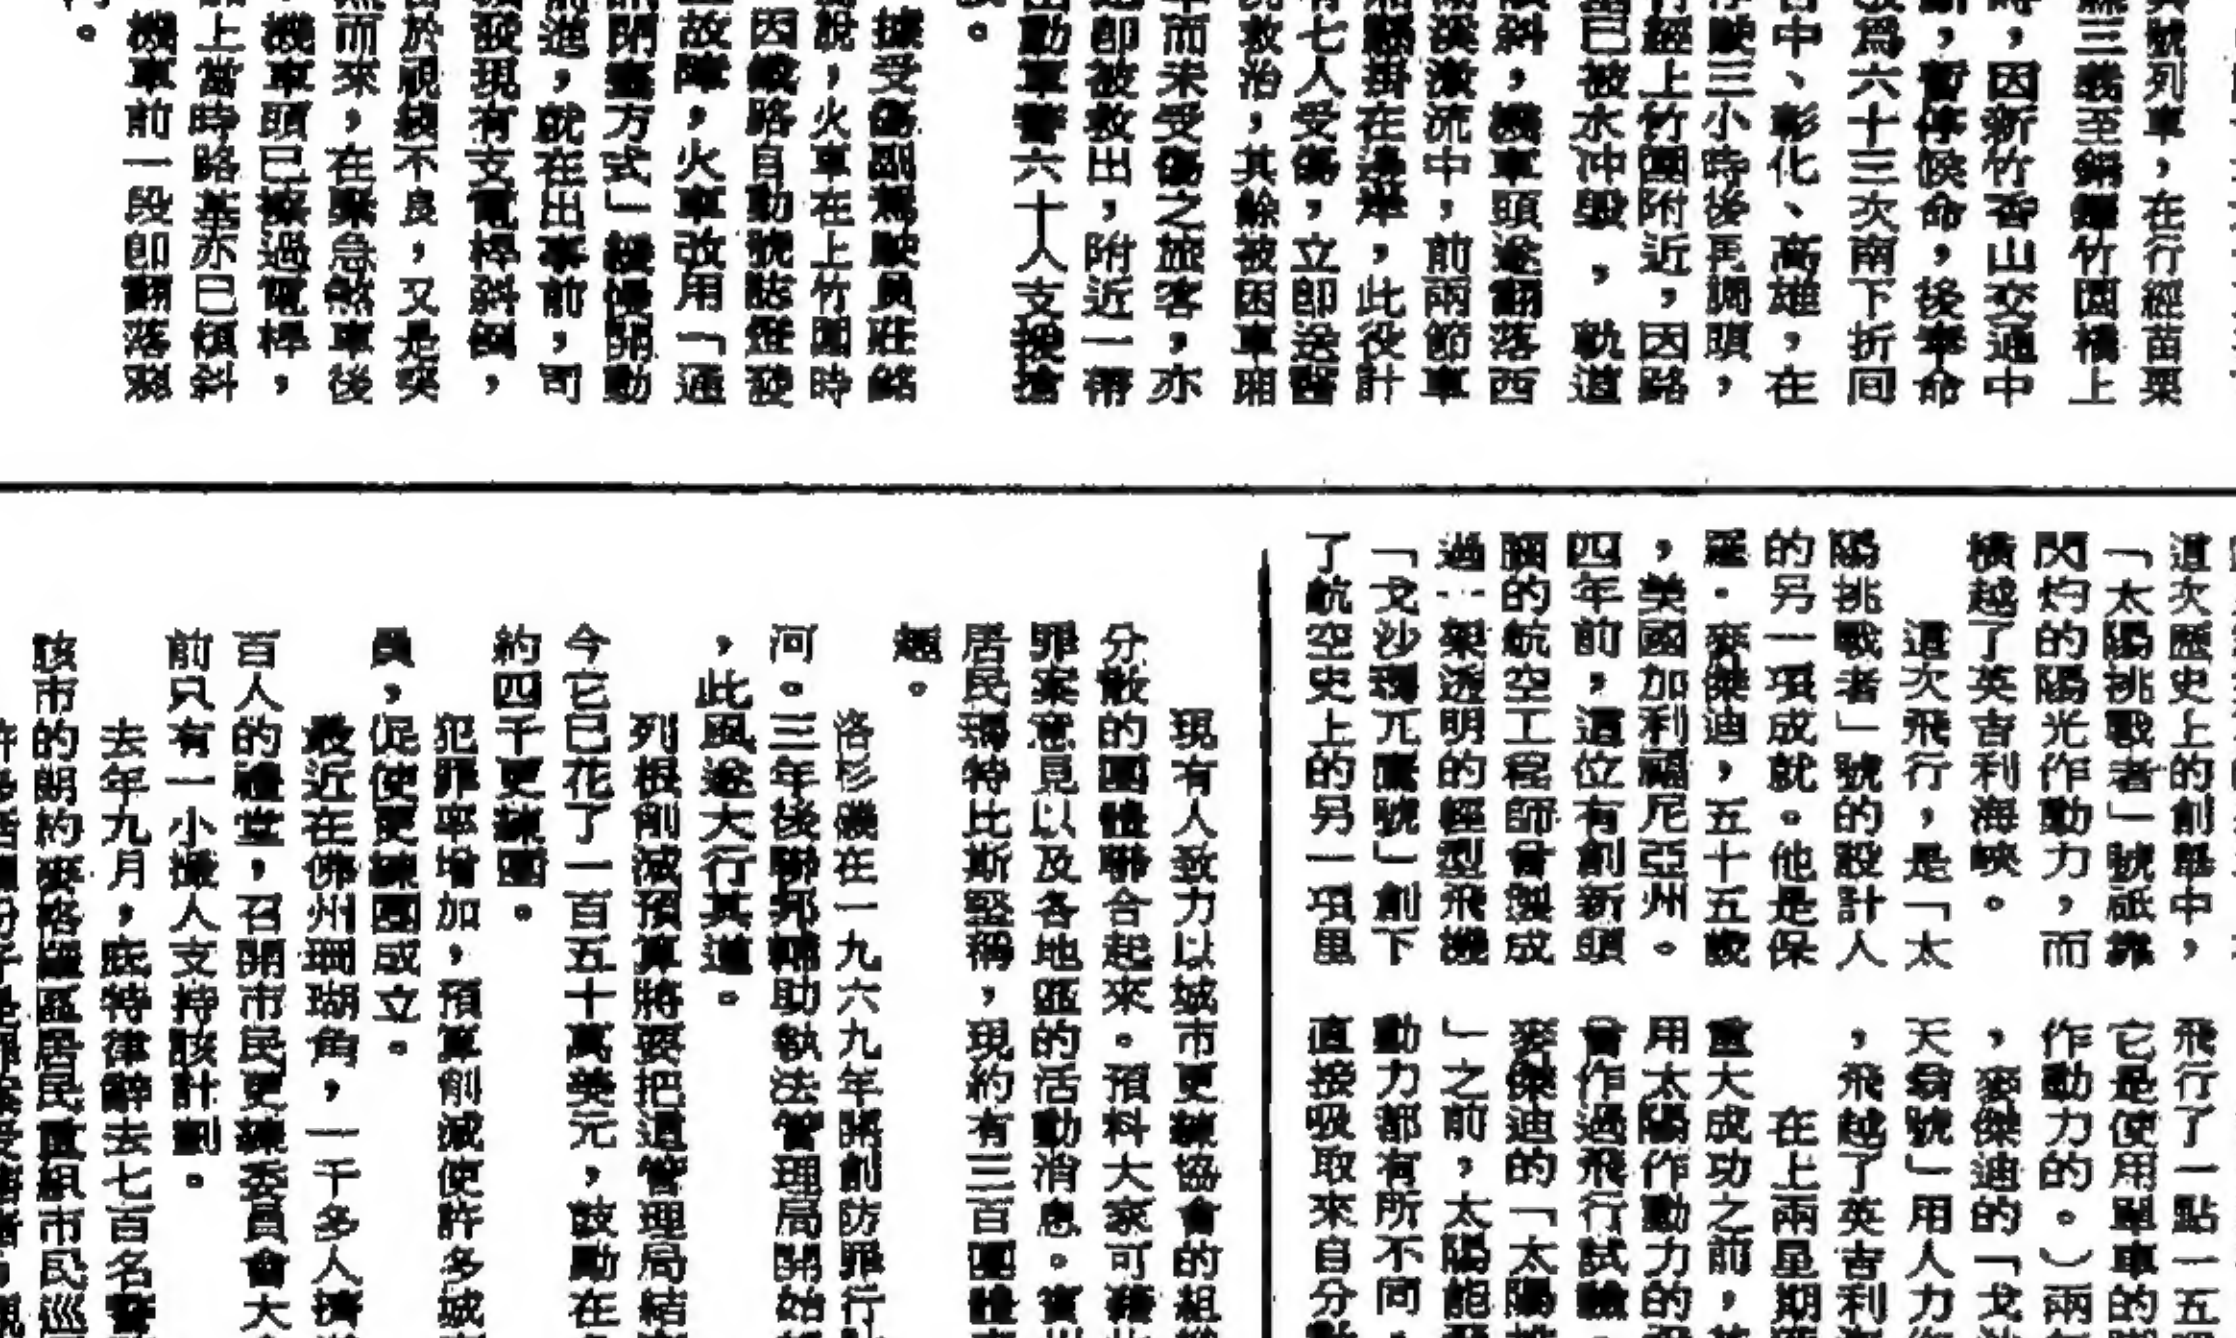 號列車，在行經苗栗
三義至銅鑼竹圍橋上
時，因新竹香山交通中
斷，暫停候命，後奉命
為六十三次南下折回
中、彰化、高雄，在
停駛三小時後再調頭，
行經上竹圍附近，因路
已被水沖毀，軌道
傾斜，機車頭遂翻落西
湖溪激流中，前兩節車
廂懸掛在邊岸，此役計
有七人受傷，立即送醫
救治，其餘被困車廂
車而未受傷之旅客，亦
即被救出，附近一帶
出動軍警六十人支援搶
。
據受傷副駕駛員莊銘
說，火車在上竹圍時
因鐵路自動號誌燈發
故障，火車改用「通
訊閉塞方式」緩慢開動
前進，就在出事前，司
發現有支電桿斜倒，
由於視線不良，又是突
然而來，在緊急煞車後
機車頭已擦過電桿，
上當時路基亦已傾斜
機車前一段即翻落溪
。
這次歷史上的創舉中，
「太陽挑戰者」號祇靠
閃灼的陽光作動力，而
橫越了英吉利海峽。
這次飛行，是「太
陽挑戰者」號的設計人
的另一項成就。他是保
羅．麥傑迪，五十五歲
，美國加利福尼亞州。
四年前，這位有創新頭
腦的航空工程師會製成
過一架透明的輕型飛機
「戈沙瑪兀鷹號」創下
了航空史上的另一項里
飛行了一點一五
它是使用單車的
作動力的。）兩
，麥傑迪的「戈沙
天翕號」用人力
，飛越了英吉利
在上兩星期
重大成功之前，
用太陽作動力的
會作過飛行試驗
麥傑迪的「太陽
」之前，太陽能
動力都有所不同，
直接吸取來自分
現有人致力以城市更練協會的組
分散的團體聯合起來。預料大家可藉
罪案意見以及各地區的活動消息。賓
居民瑪特比斯堅稱，現約有三百團體
趣。
洛杉磯在一九六九年開創防罪行
河。三年後聯邦輔助執法管理局開始
，此風遂大行其道。
列根削減預算將要把這管理局結
今它已花了一百五十萬美元，鼓勵在
約四千更練團。
犯罪率增加，預算削減使許多城
員，促使更練團成立。
最近在佛州珊瑚角，一千多人擠
百人的禮堂，召開市民更練委員會大
前只有一小撮人支持該計劃。
去年九月，底特律辭去七百名警
該市的朗約麥格羅區居民重組市民巡